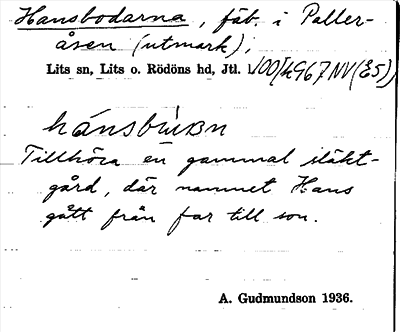 Hansbodarna, fäb. i Paller-
åsen (utmark),
Lits sn, Lits o. Rödöns hd, Jtl.
hánsbùɯʙn
Tillhöra en gammal släkt-
gård, där namnet Hans
gått från far till son.
A. Gudmundson 1936.